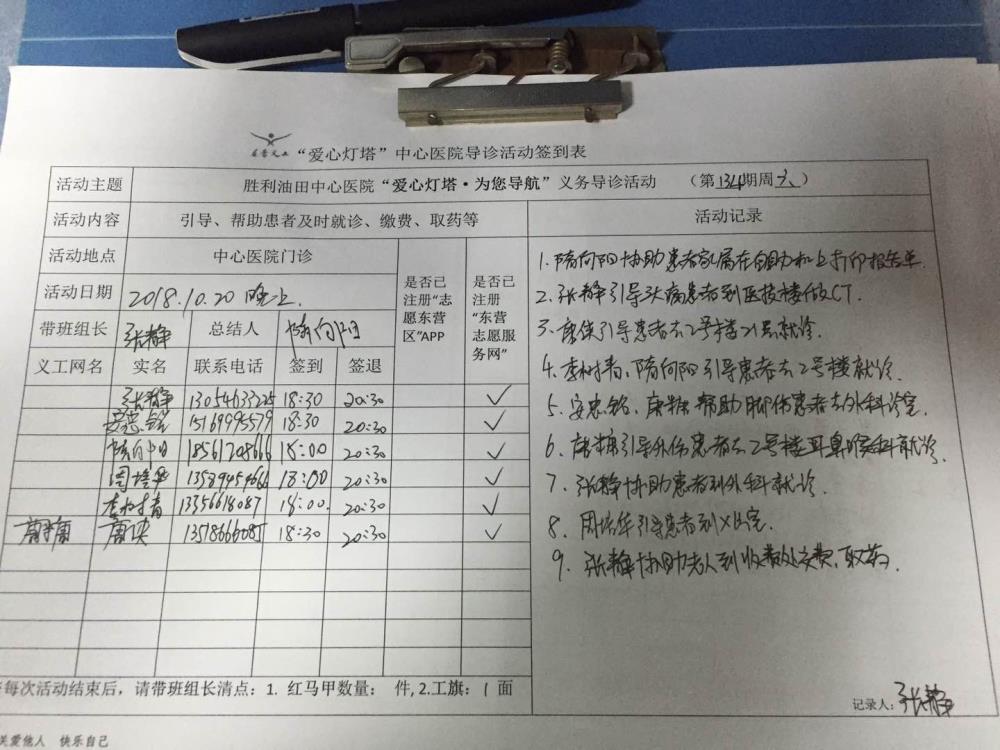 “爱心灯塔”中心医院导诊活动签到表
活动主题 胜利油田中心医院“爱心灯塔·为您导航”义务导诊活动 （第134期周六）
活动内容 引导、帮助患者及时就诊、缴费、取药等 活动记录
活动地点 中心医院门诊 是否已注册“志愿东营区”APP 是否已注册“东营志愿服务网”
活动日期 2018.10.20 晚上.
带班组长 张静 总结人 隋向阳
义工网名 实名 联系电话 签到 签退
张静 13054633225 18:30 20:30 ✓
安忠铭 15169995579 18:30 20:30 ✓
隋向阳 18561208666 18:00 20:30 ✓
周培华 18:00 20:30 ✓
李树青 13356618087 18:00. 20:30 ✓
18:30 20:30 ✓
1. 隋向阳协助患者家属在自助机上打印报告单.
2. 张静引导头病患者到医技楼做CT.
3. 引导患者去2号楼21层就诊.
4. 李树青、隋向阳引导患者去2号楼就诊.
5. 安忠铭、帮助脚伤患者去外科诊室.
6. 引导外伤患者去2号楼耳鼻喉科就诊.
7. 张静协助患者到外科就诊.
8. 周培华引导患者到X光室.
9. 张静协助老人到收费处交费、取药.
每次活动结束后，请带班组长清点：1. 红马甲数量： 件, 2.工旗：1 面
记录人：张静
关爱他人 快乐自己